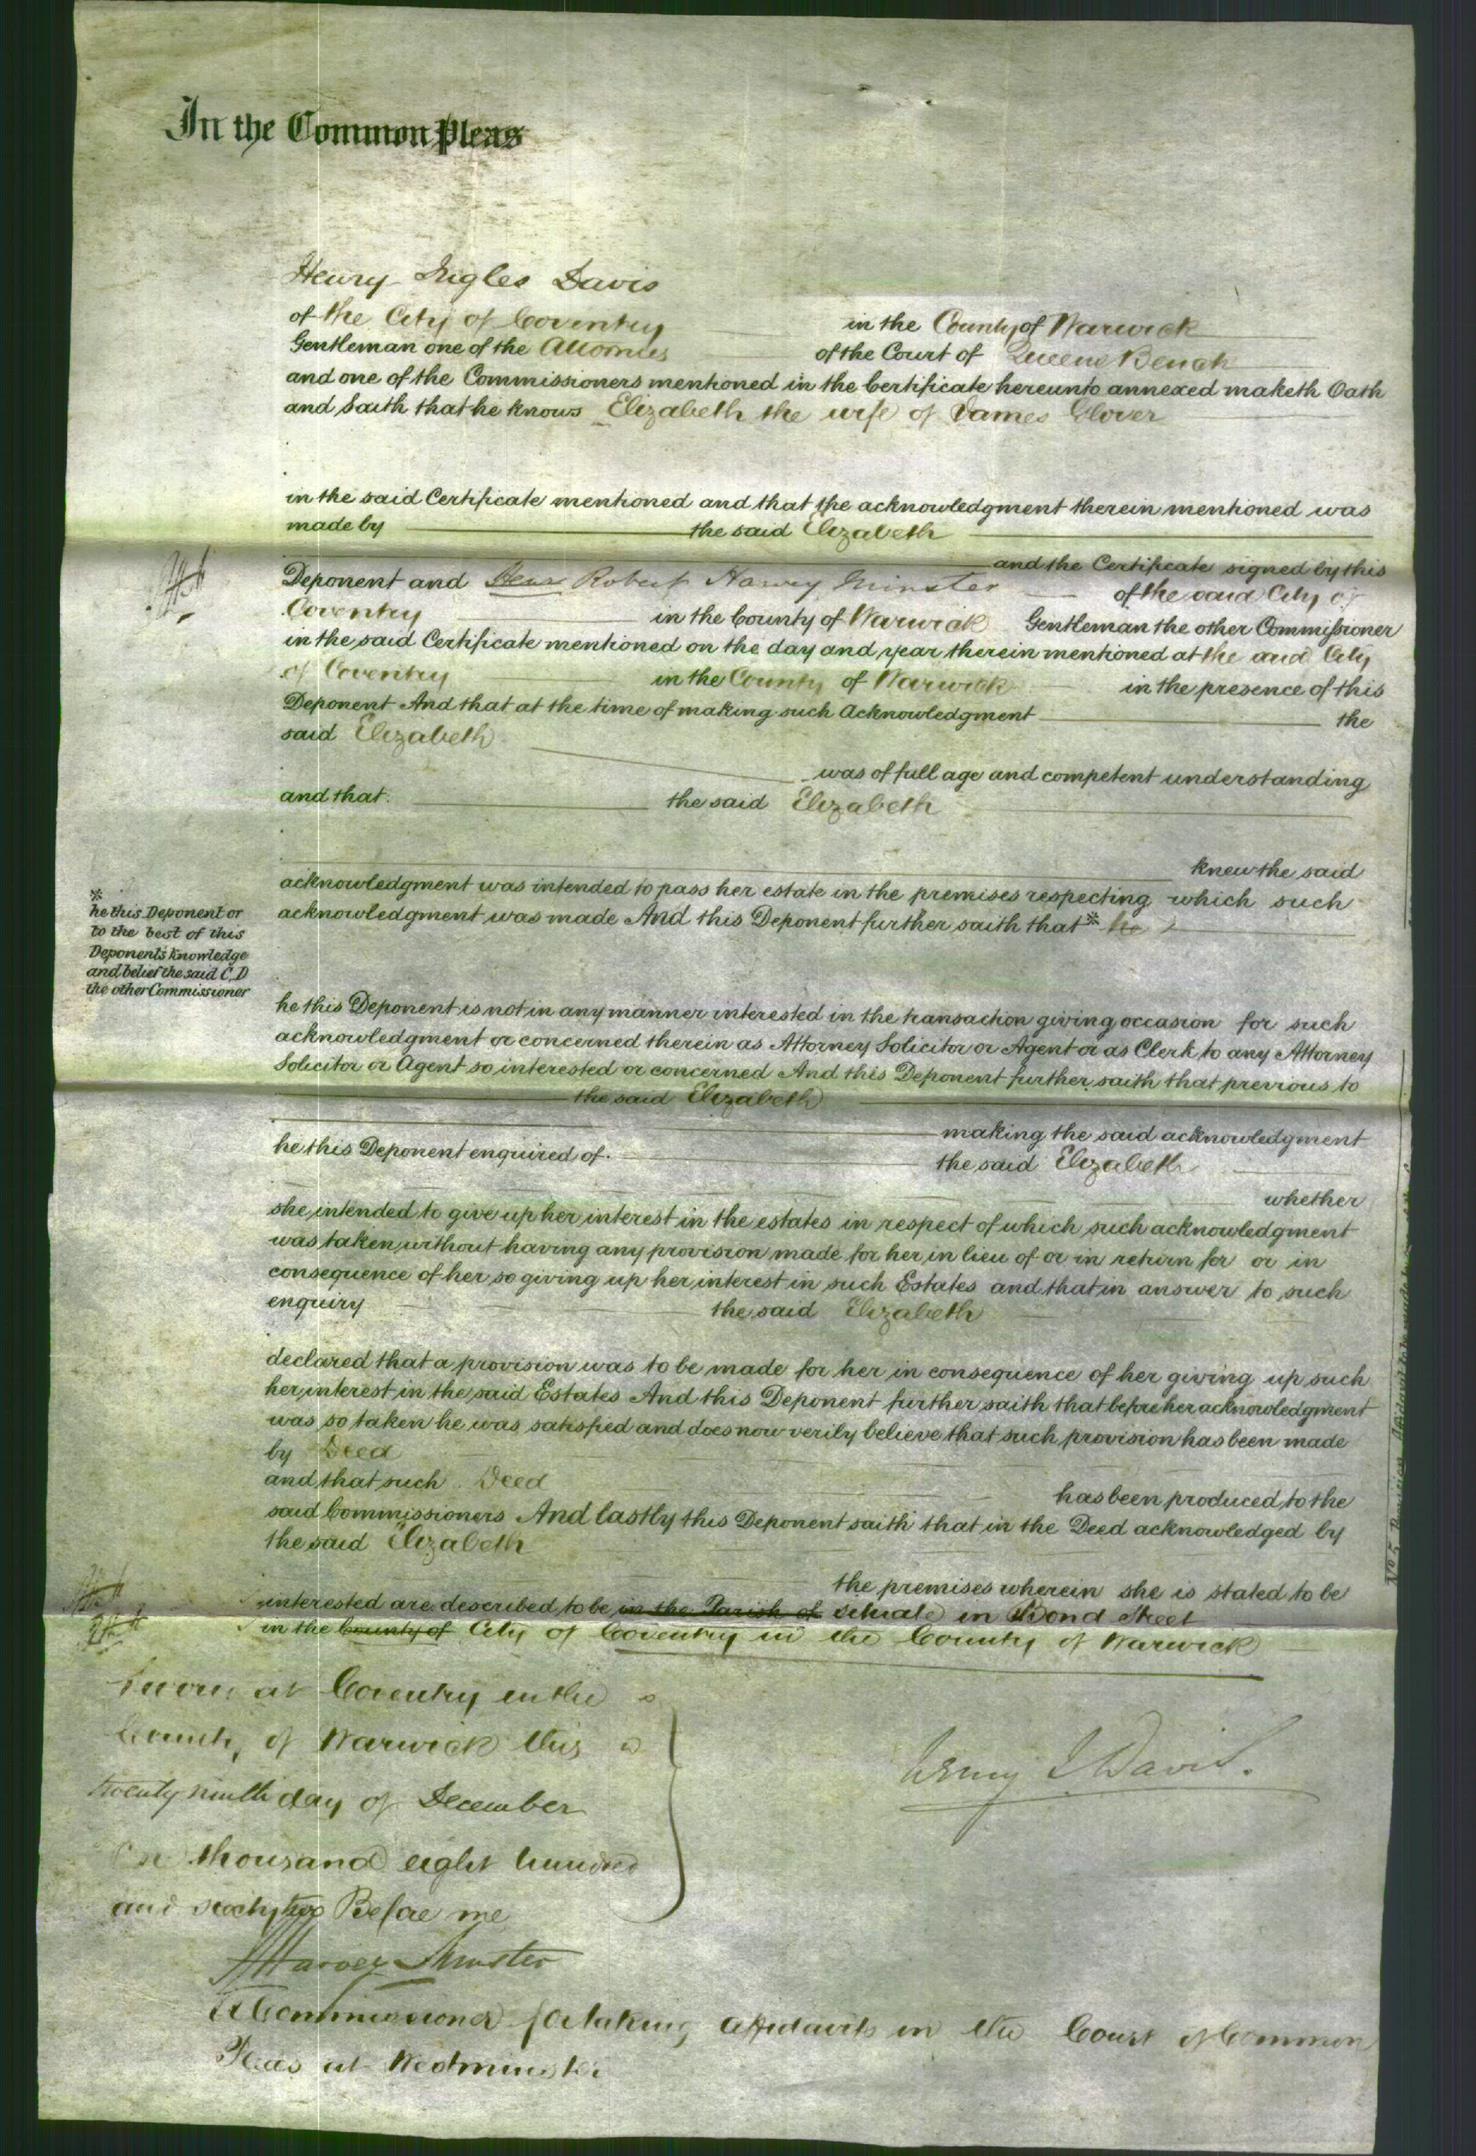 In the Common Pleas
Henry Ingles Davis
of the City of Coventry in the County of Warwick
Gentleman one of the Attornies of the Court of Queens Bench
and one of the Commissioners mentioned in the Certificate hereunto annexed maketh Oath
and Saith that he knows Elizabeth the wife of James Glover
in the said Certificate mentioned and that the acknowledgment therein mentioned was
made by the said Elizabeth
and the Certificate signed by this
Deponent and Robert Harvey Minster of the said City of
Coventry in the County of Warwick Gentleman the other Commissioner
in the said Certificate mentioned on the day and year therein mentioned at the said City
of Coventry in the County of Warwick in the presence of this
Deponent And that at the time of making such Acknowledgment the
said Elizabeth
was of full age and competent understanding
and that the said Elizabeth
knew the said
acknowledgment was intended to pass her estate in the premises respecting which such
acknowledgment was made And this Deponent further saith that * he
* he this Deponent or
to the best of this
Deponents knowledge
and belief the said C.D
the other Commissioner
he this Deponent is not in any manner interested in the transaction giving occasion for such
acknowledgment or concerned therein as Attorney Solicitor or Agent or as Clerk to any Attorney
Solicitor or Agent so interested or concerned And this Deponent further saith that previous to
the said Elizabeth
making the said acknowledgment
he this Deponent enquired of the said Elizabeth
whether
she intended to give up her interest in the estates in respect of which such acknowledgment
was taken without having any provision made for her in lieu of or in return for or in
consequence of her so giving up her interest in such Estates and that in answer to such
enquiry the said Elizabeth
declared that a provision was to be made for her in consequence of her giving up such
her interest in the said Estates And this Deponent further saith that before her acknowledgment
was so taken he was satisfied and does now verily believe that such provision has been made
by Deed
and that such Deed has been produced to the
said Commissioners And lastly this Deponent saith that in the Deed acknowledged by
the said Elizabeth
the premises wherein she is stated to be
interested are described to be in the Parish of situate in Bond Street
in the County of City of Coventry in the County of Warwick
Sworn at Coventry in the
County of Warwick this
twenty ninth day of December
One thousand eight hundred
and sixty two Before me
Henry I Davis.
R Harvey Minster
A Commissioner for taking affidavits in the Court of Common
Pleas at Westminster